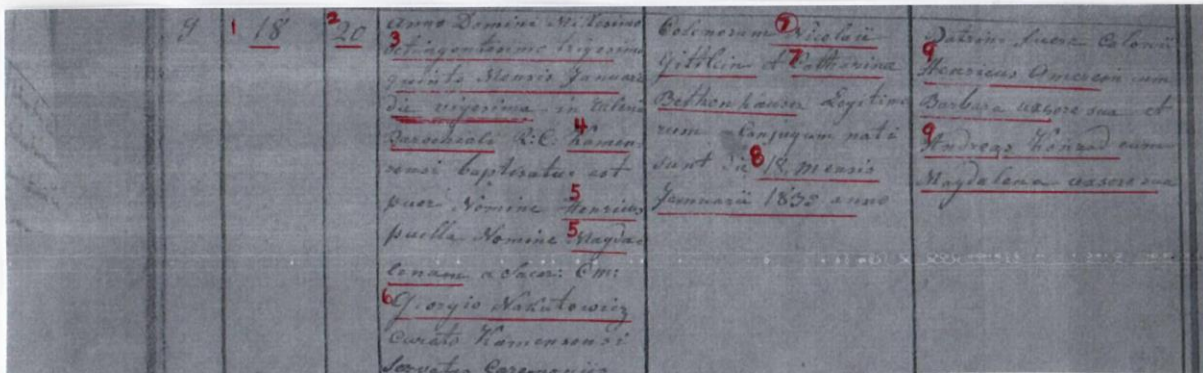 9 1 18 2 20
Anno Domini Milesimo
3
octingentesimo trigesimo
quinto Mensis Januarii
die vigesima in Eclesia
Parochiali R: C. 4 Kamen-
sensi baptisatus est
5
puer Nomine Henricus
puella Nomine 5 Magda-
lenam a Sacer:
6 Giorgio Nakutowicz
Curato Kamensensi
Servatis Caeremoniis
Colonorum 7 Nicolaii
Gittlein et 7 Catharina
Bethenhauser Legitimo
rum Conjugum nati
sunt die 8 18 mensis
Januarii 1835 anno
Patrini fuere Colonii
9
Henricus cum
Barbara uxore sua et
9
Andreas Konrad cum
Magdalena uxore sua